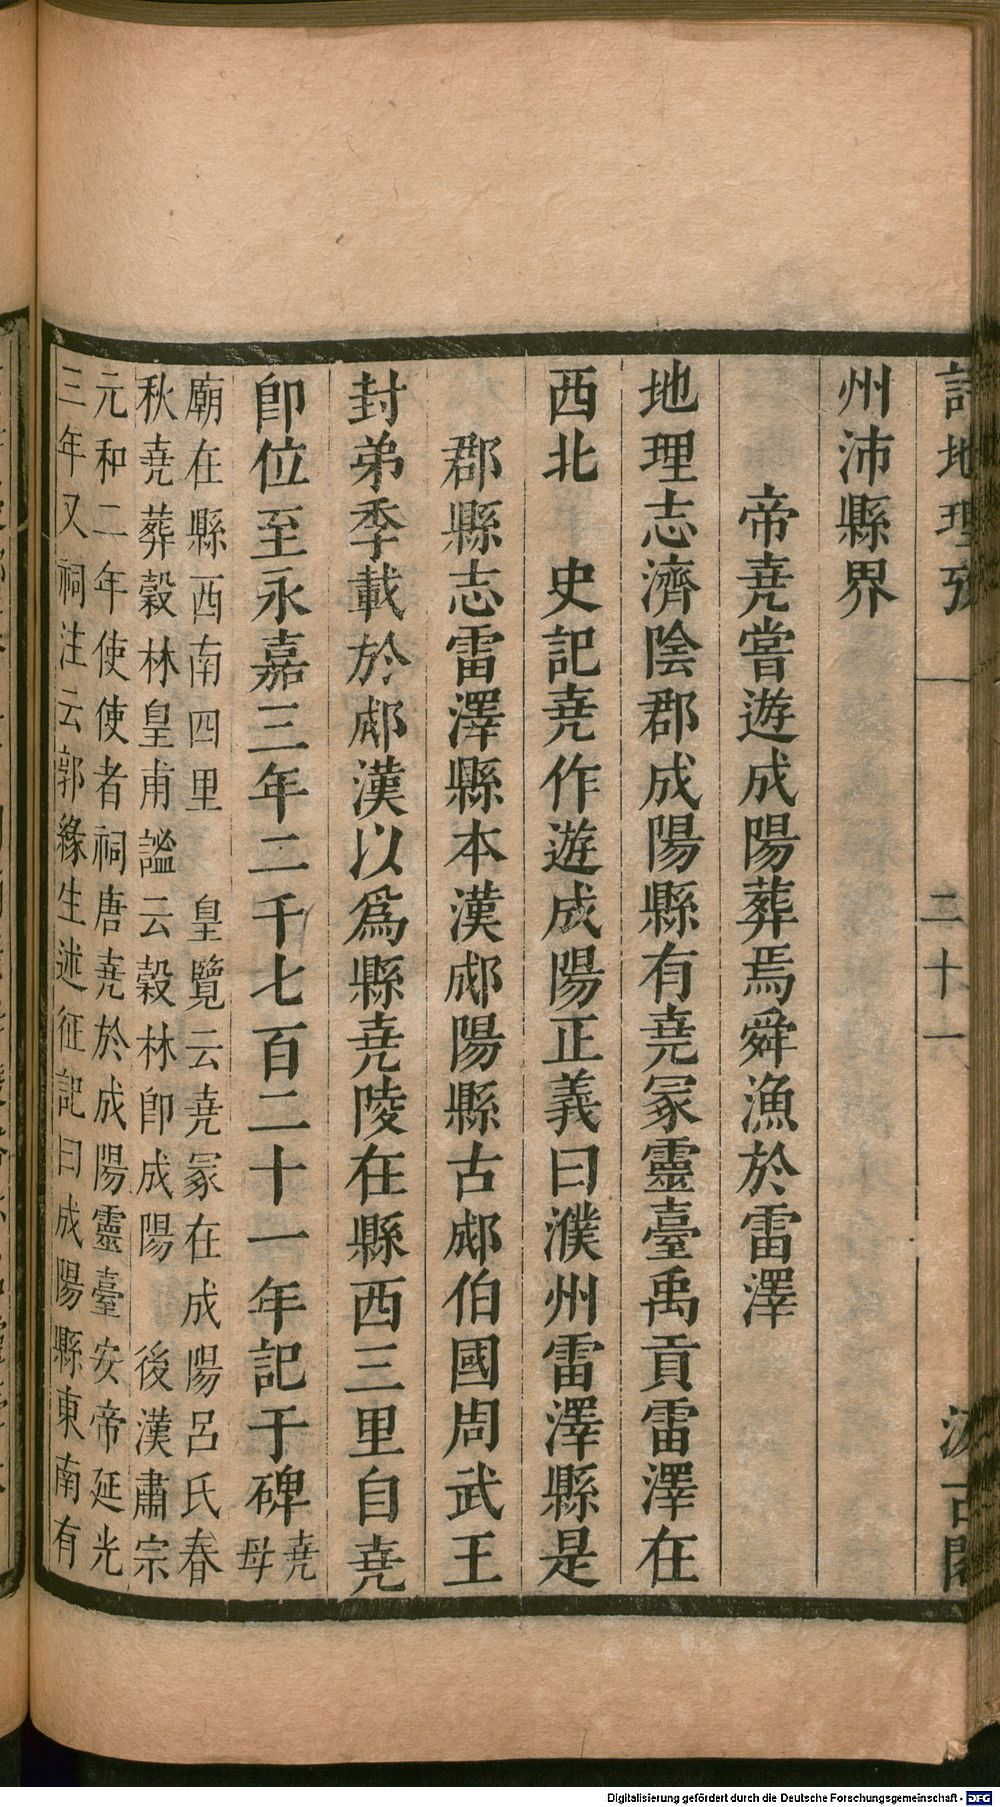 詩地理攷 二十一 汲古閣
州沛縣界
帝堯嘗遊成陽葬焉舜漁於雷澤
地理志濟陰郡成陽縣有堯冢靈臺禹貢雷澤在
西北 史記堯作遊成陽正義曰濮州雷澤縣是
郡縣志雷澤縣本漢郕陽縣古郕伯國周武王
封弟季載於郕漢以爲縣堯陵在縣西三里自堯
卽位至永嘉三年二千七百二十一年記于碑堯
母
廟在縣西南四里 皇覽云堯冢在成陽呂氏春
秋堯葬穀林皇甫謐云穀林卽成陽 後漢肅宗
元和二年使使者祠唐堯於成陽靈臺安帝延光
三年又祠注云郭緣生述征記曰成陽縣東南有
Digitalisierung gefördert durch die Deutsche Forschungsgemeinschaft - DFG